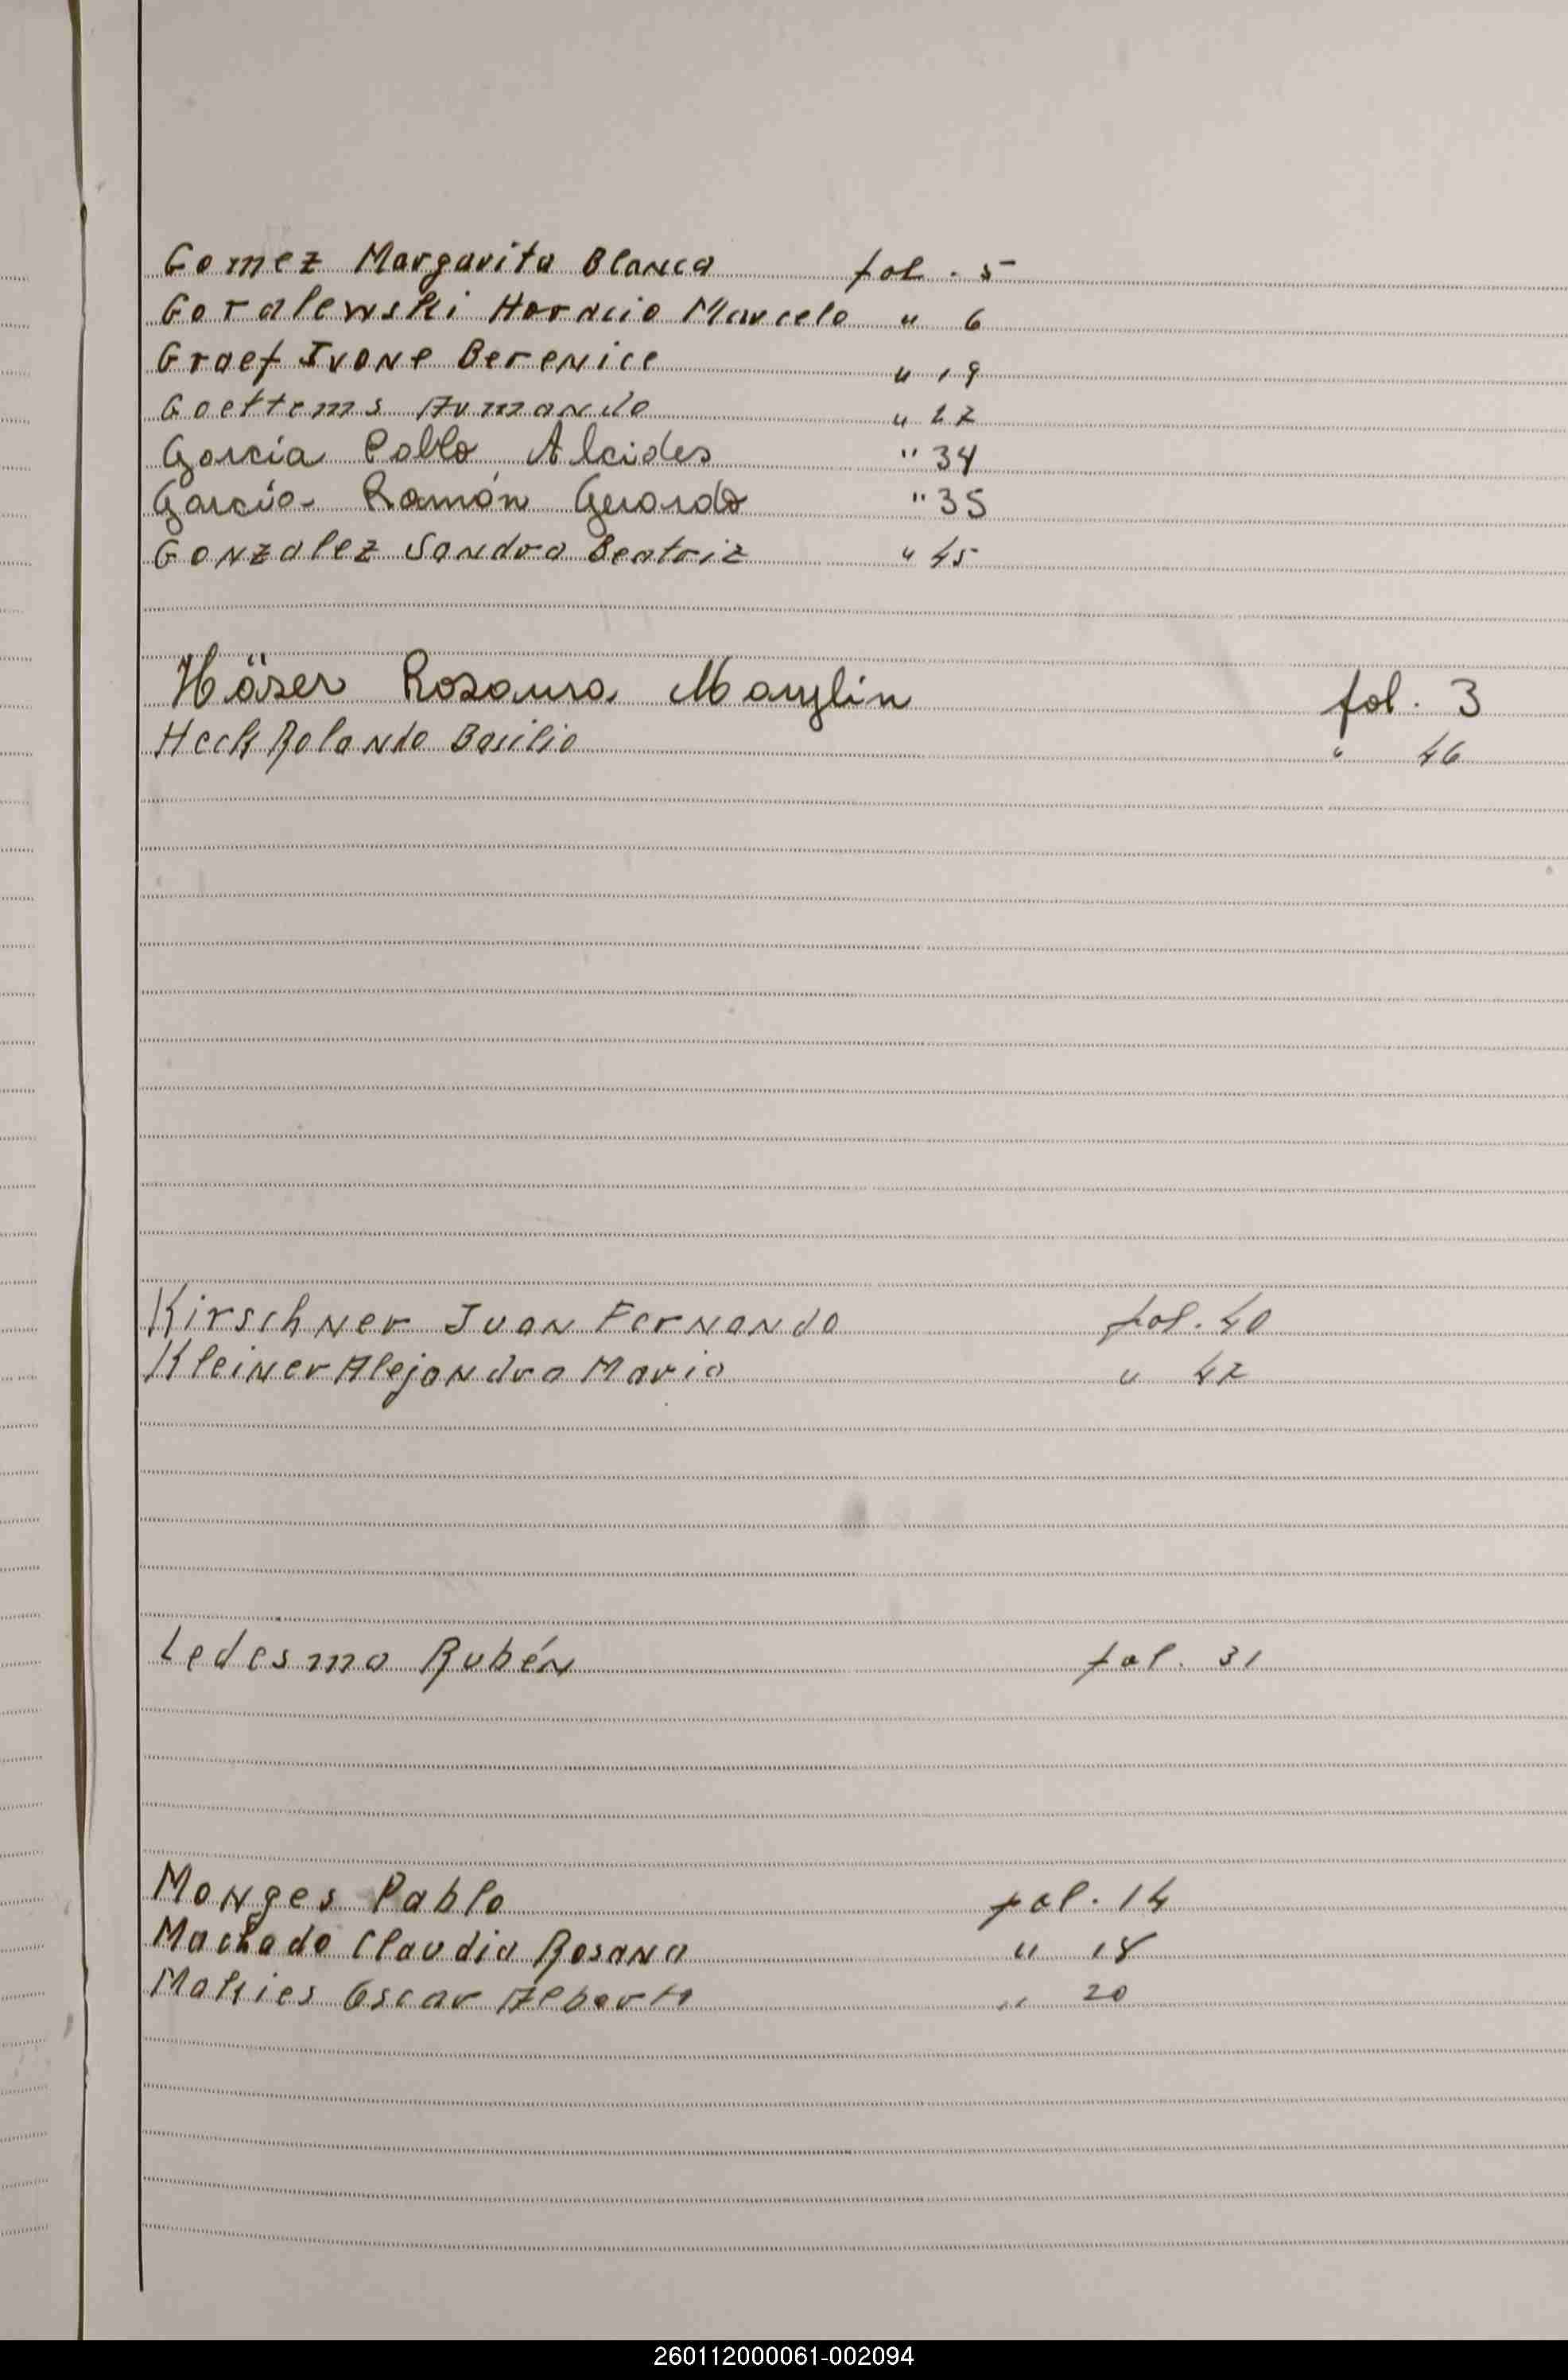 Gomez Margarita Blanca fol. 5
Goralewski Horacio Marcelo " 6
Graef Ivone Berenice " 19
Goettems Armando " 27
García Pablo Alcides " 34
García Ramón Gerardo " 35
Gonzalez Sandra Beatriz " 45
Häser Rosaura Marylin fol. 3
Heck Rolando Basilio " 46
Kirschner Juan Fernando fol. 40
Kleiner Alejandra Maria " 42
Ledesma Rubén fol. 31
Monges Pablo fol. 14
Machado Claudia Rosana " 18
Malkies Oscar Alberto " 20
260112000061-002094